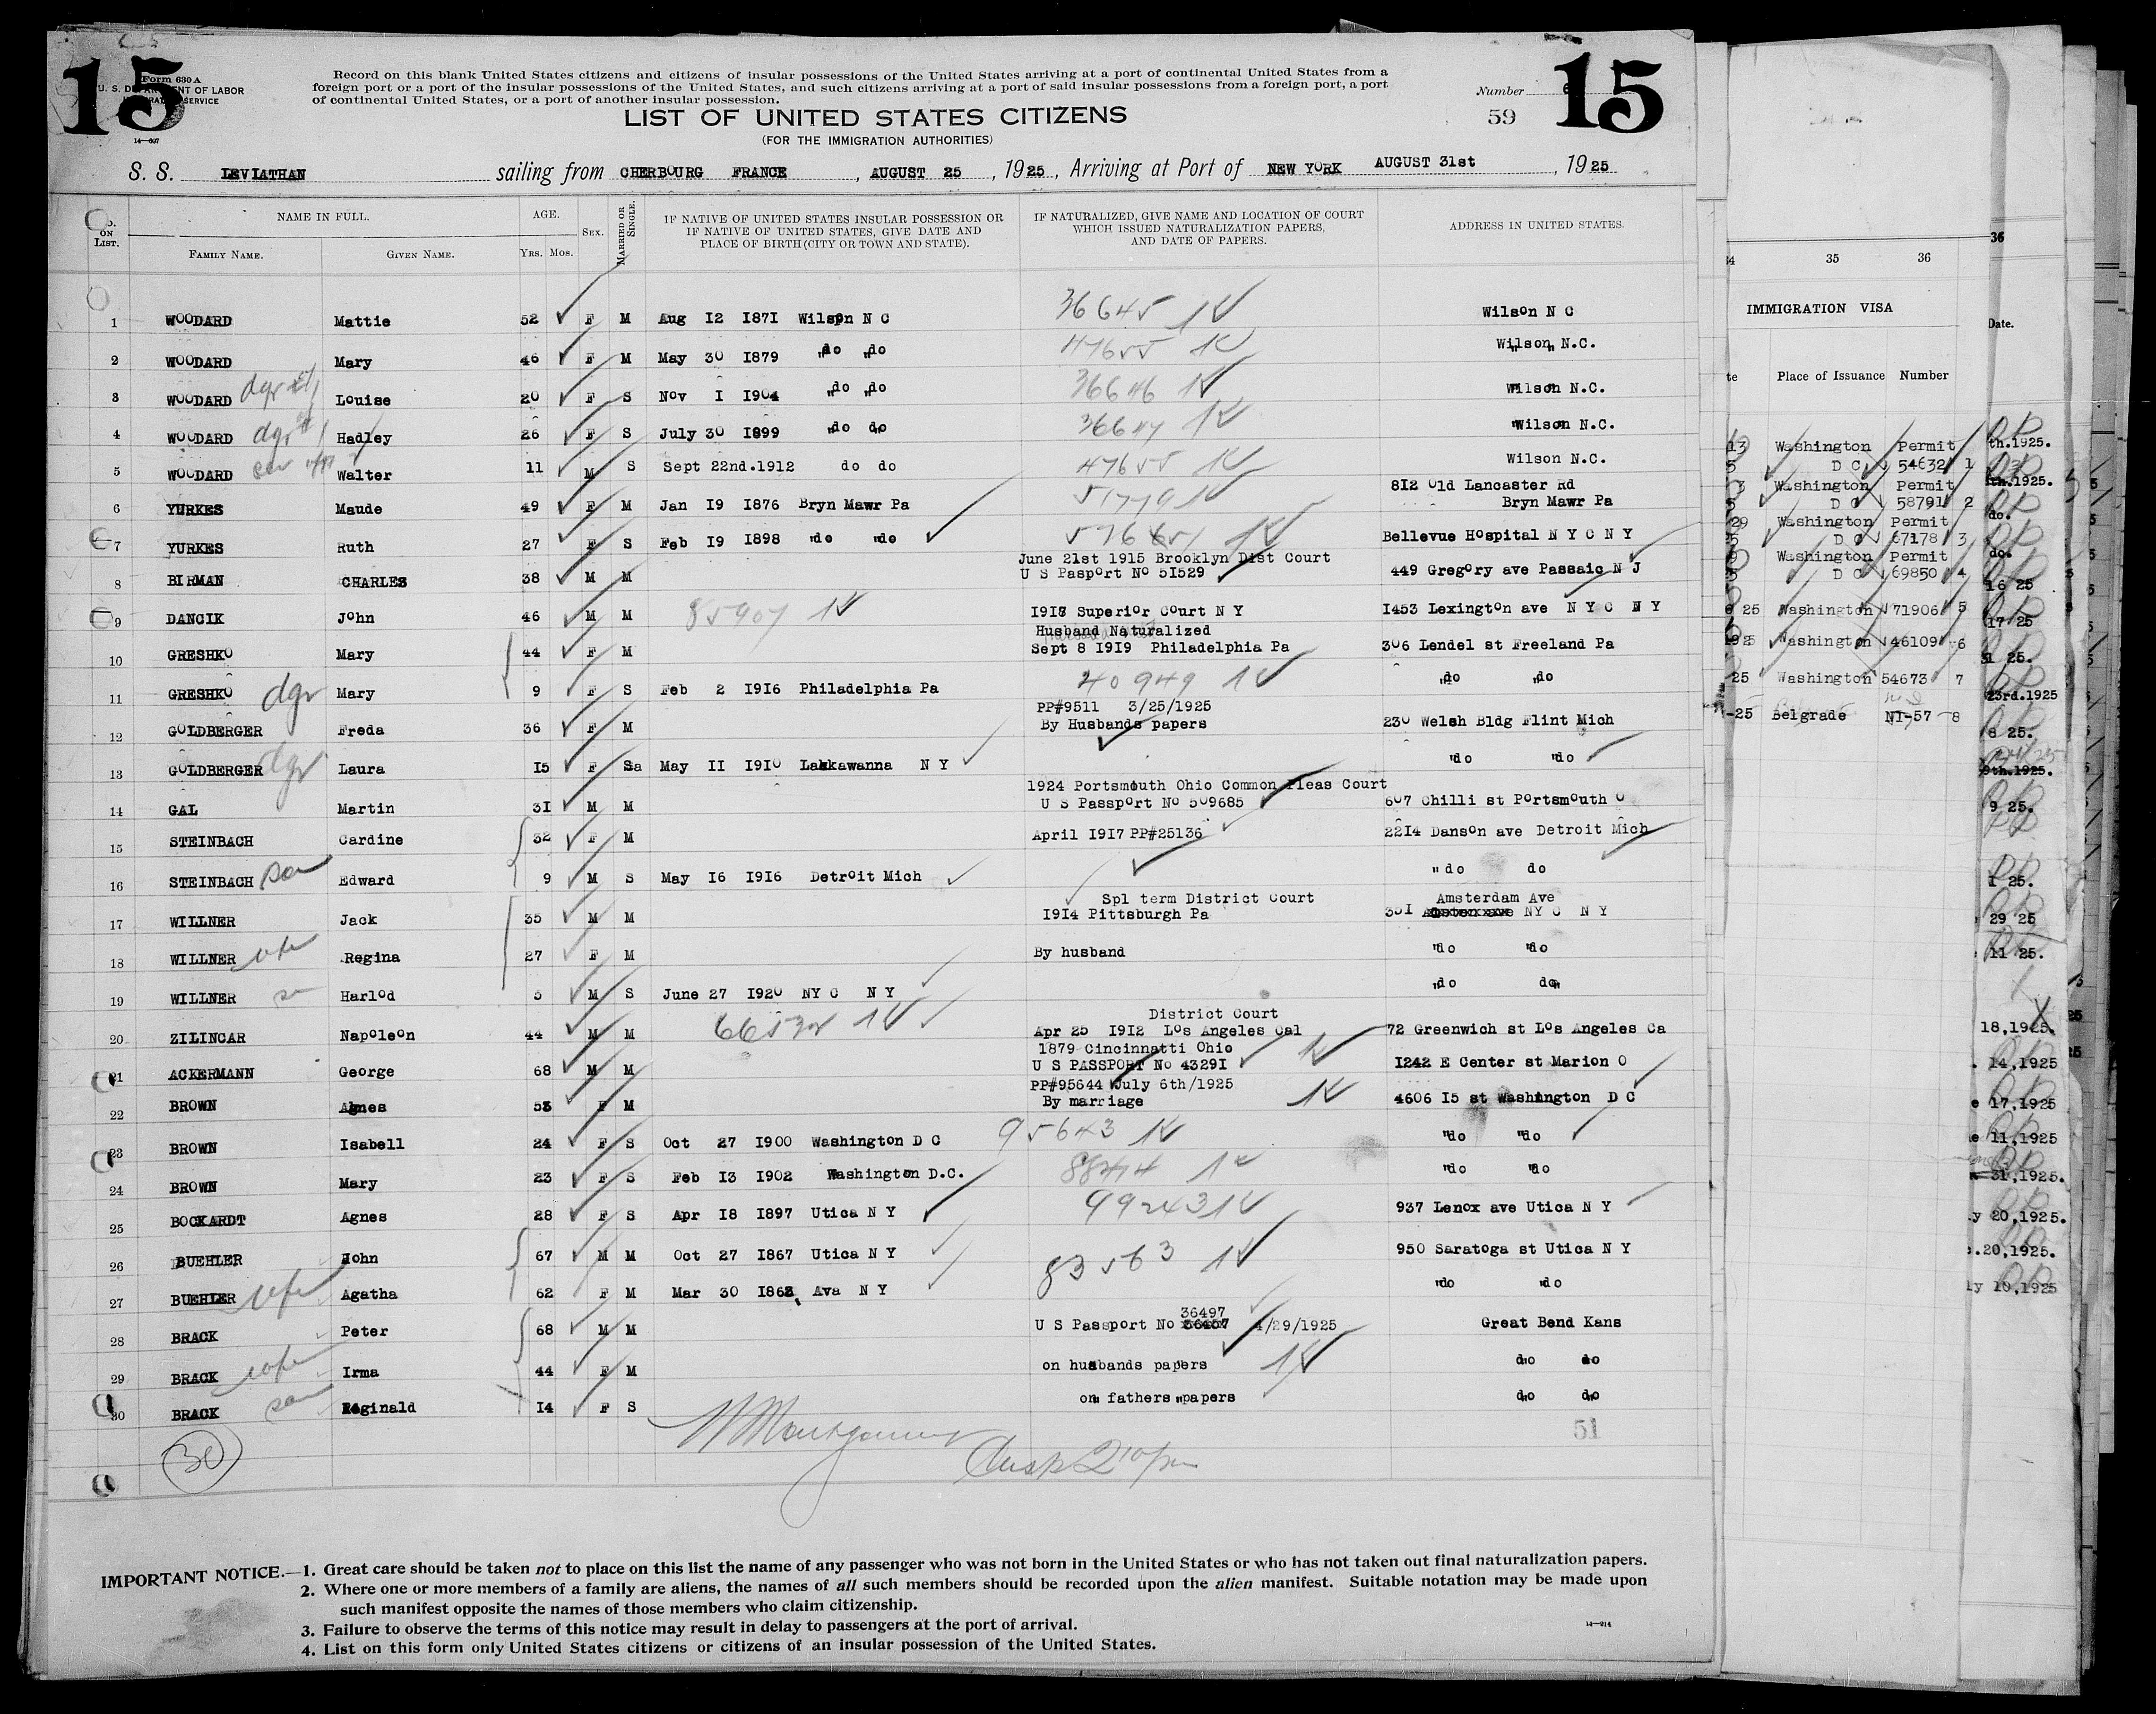 15
Form 630 A
U. S. DEPARTMENT OF LABOR
IMMIGRATION SERVICE
14—607
Record on this blank United States citizens and citizens of insular possessions of the United States arriving at a port of continental United States from a
foreign port or a port of the insular possessions of the United States, and such citizens arriving at a port of said insular possessions from a foreign port, a port
of continental United States, or a port of another insular possession.
Number
59
15
LIST OF UNITED STATES CITIZENS
(FOR THE IMMIGRATION AUTHORITIES)
S. S. LEVIATHAN sailing from CHERBOURG FRANCE, AUGUST 25, 1925, Arriving at Port of NEW YORK AUGUST 31st, 1925
No. ON LIST.
NAME IN FULL.
FAMILY NAME. GIVEN NAME.
AGE.
Yrs. Mos.
SEX.
MARRIED OR SINGLE.
IF NATIVE OF UNITED STATES INSULAR POSSESSION OR
IF NATIVE OF UNITED STATES, GIVE DATE AND
PLACE OF BIRTH (CITY OR TOWN AND STATE).
IF NATURALIZED, GIVE NAME AND LOCATION OF COURT
WHICH ISSUED NATURALIZATION PAPERS,
AND DATE OF PAPERS.
ADDRESS IN UNITED STATES.
1 WOODARD Mattie 52 F M Aug 12 1871 Wilson N C 36645 Wilson N C
2 WOODARD Mary 46 F M May 30 1879 "do "do 47655 Wilson N.C.
3 WOODARD dgr Louise 20 F S Nov 1 1904 "do "do 36646 Wilson N.C.
4 WOODARD dgr Hadley 26 F S July 30 1899 "do do 36647 Wilson N.C.
5 WOODARD Walter 11 M S Sept 22nd.1912 do do 47655 Wilson N.C.
6 YURKES Maude 49 F M Jan 19 1876 Bryn Mawr Pa 51779 812 Old Lancaster Rd
Bryn Mawr Pa
7 YURKES Ruth 27 F S Feb 19 1898 "do "do Bellevue Hospital N Y C N Y
June 21st 1915 Brooklyn Dist Court
8 BIRMAN CHARLES 38 M M U S Pasport No 51529 449 Gregory ave Passaic N J
9 DANCIK John 46 M M 85907 1918 Superior Court N Y 1453 Lexington ave N Y C N Y
Husband Naturalized
10 GRESHKO Mary 44 F M Sept 8 1919 Philadelphia Pa 306 Lendel st Freeland Pa
11 GRESHKO dgr Mary 9 F S Feb 2 1916 Philadelphia Pa 40949 "do "do
PP#9511 3/25/1925
12 GOLDBERGER Freda 36 F M By Husbands papers 230 Welsh Bldg Flint Mich
13 GOLDBERGER dgr Laura 15 F S May 11 1910 Lakkawanna N Y "do "do
1924 Portsmouth Ohio Common Pleas Court
14 GAL Martin 31 M M U S Passport No 509685 607 Chilli st Portsmouth O
15 STEINBACH Cardine 32 F M April 1917 PP#25136 2214 Danson ave Detroit Mich
16 STEINBACH son Edward 9 M S May 16 1916 Detroit Mich "do do
Spl term District Court Amsterdam Ave
17 WILLNER Jack 35 M M 1914 Pittsburgh Pa 301 NY C N Y
18 WILLNER wfe Regina 27 F M By husband "do "do
19 WILLNER Harlod 5 M S June 27 1920 NY C N Y "do do"
District Court
20 ZILINCAR Napoleon 44 M M Apr 25 1912 Los Angeles Cal 72 Greenwich st Los Angeles Ca
1879 Cincinnatti Ohio
21 ACKERMANN George 68 M M U S PASSPORT No 43291 1242 E Center st Marion O
PP#95644 July 6th/1925
22 BROWN Agnes 53 F M By marriage 4606 15 st Washington D C
23 BROWN Isabell 24 F S Oct 27 1900 Washington D C 95643 "do "do
24 BROWN Mary 23 F S Feb 13 1902 Washington D.C. "do "do
25 BOCKARDT Agnes 28 F S Apr 18 1897 Utica N Y 99243 937 Lenox ave Utica N Y
26 BUEHLER John 67 M M Oct 27 1867 Utica N Y 83563 950 Saratoga st Utica N Y
27 BUEHLER wfe Agatha 62 F M Mar 30 1863 Ava N Y "do "do
36497
28 BRACK Peter 68 M M U S Passport No 36457 4/29/1925 Great Bend Kans
29 BRACK wfe Irma 44 F M on husbands papers do do
30 BRACK son Reginald 14 F S on fathers papers do do
30
51
IMPORTANT NOTICE.—1. Great care should be taken not to place on this list the name of any passenger who was not born in the United States or who has not taken out final naturalization papers.
2. Where one or more members of a family are aliens, the names of all such members should be recorded upon the alien manifest. Suitable notation may be made upon
such manifest opposite the names of those members who claim citizenship.
3. Failure to observe the terms of this notice may result in delay to passengers at the port of arrival.
4. List on this form only United States citizens or citizens of an insular possession of the United States.
14—914
35 36
IMMIGRATION VISA
Place of Issuance Number
Washington Permit
D C 54632 1
Washington Permit
D C 58791 2
Washington Permit
D C 67178 3
Washington Permit
D C 69850 4
25 Washington 71906 5
Washington 46109 6
25 Washington 54673 7
-25 Belgrade NI-57 -8
36
Date.
th.1925.
th.1925.
do.
do.
16 25
17 25
1 25.
23rd.1925
8 25.
9th.1925.
9 25.
1 25.
29 25
11 25.
18,1925.
14,1925
17,1925
11,1925
31,1925.
20,1925.
.20,1925.
ly 10,1925